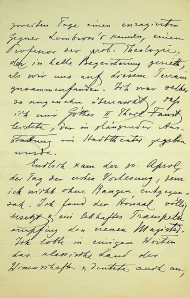 zweiten Tage einen enragierten
Gegner Lombroso's kennen, einen
Professor der prot. Theologie,
der in helle Begeisterung gerieth,
als wir uns auf diesem Terrain
zusammenfanden. Ich war selbst
so angenehm überrascht, daß
ich mir Göthes II Theil Faust
leistete, der in glänzender Aus-
stattung im Stadttheater gegeben
wurde.
Endlich kam der 30 April,
der Tag der ersten Vorlesung, dem
ich nicht ohne Bangen entgegen-
sah. Ich fand den Hörsaal völlig
besetzt &amp; ein lebhaftes Trampeln
empfing den neuen Magister.
Ich lobte in einigen Worten
das classische Land der
Wissenschaft &amp; auch,